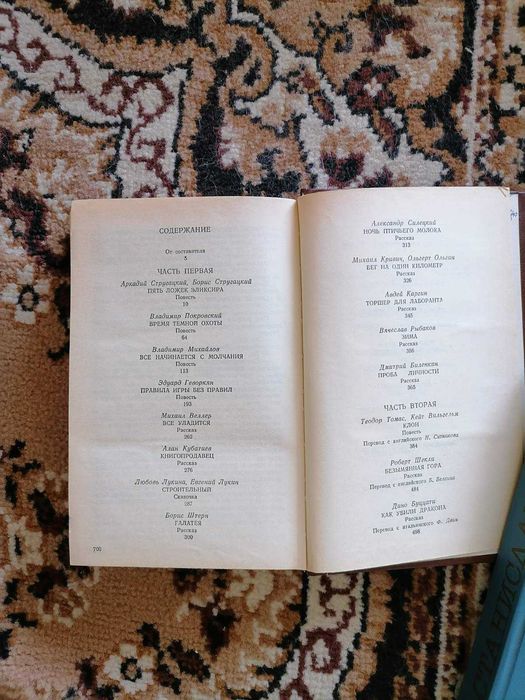 СОДЕРЖАНИЕ
От составителя
5
ЧАСТЬ ПЕРВАЯ
Аркадий Стругацкий, Борис Стругацкий
ПЯТЬ ЛОЖЕК ЭЛИКСИРА
Повесть
10
Владимир Покровский
ВРЕМЯ ТЕМНОЙ ОХОТЫ
Повесть
64
Владимир Михайлов
ВСЕ НАЧИНАЕТСЯ С МОЛЧАНИЯ
Повесть
113
Эдуард Геворкян
ПРАВИЛА ИГРЫ БЕЗ ПРАВИЛ
Повесть
193
Михаил Веллер
ВСЕ УЛАДИТСЯ
Рассказ
262
Алан Кубатиев
КНИГОПРОДАВЕЦ
Рассказ
276
Любовь Лукина, Евгений Лукин
СТРОИТЕЛЬНЫЙ
Сказочка
287
Борис Штерн
ГАЛАТЕЯ
Рассказ
300
700
Александр Силецкий
НОЧЬ ПТИЧЬЕГО МОЛОКА
Рассказ
313
Михаил Кривич, Ольгерт Ольгин
БЕГ НА ОДИН КИЛОМЕТР
Рассказ
326
Авдей Каргин
ТОРШЕР ДЛЯ ЛАБОРАНТА
Рассказ
345
Вячеслав Рыбаков
ЗИМА
Рассказ
356
Дмитрий Биленкин
ПРОБА ЛИЧНОСТИ
Рассказ
365
ЧАСТЬ ВТОРАЯ
Теодор Томас, Кейт Вильгельм
КЛОН
Повесть
Перевод с английского Н. Ситникова
384
Роберт Шекли
БЕЗЫМЯННАЯ ГОРА
Рассказ
Перевод с английского Б. Белкина
484
Дино Буццати
КАК УБИЛИ ДРАКОНА
Рассказ
Перевод с итальянского Ф. Двин
498